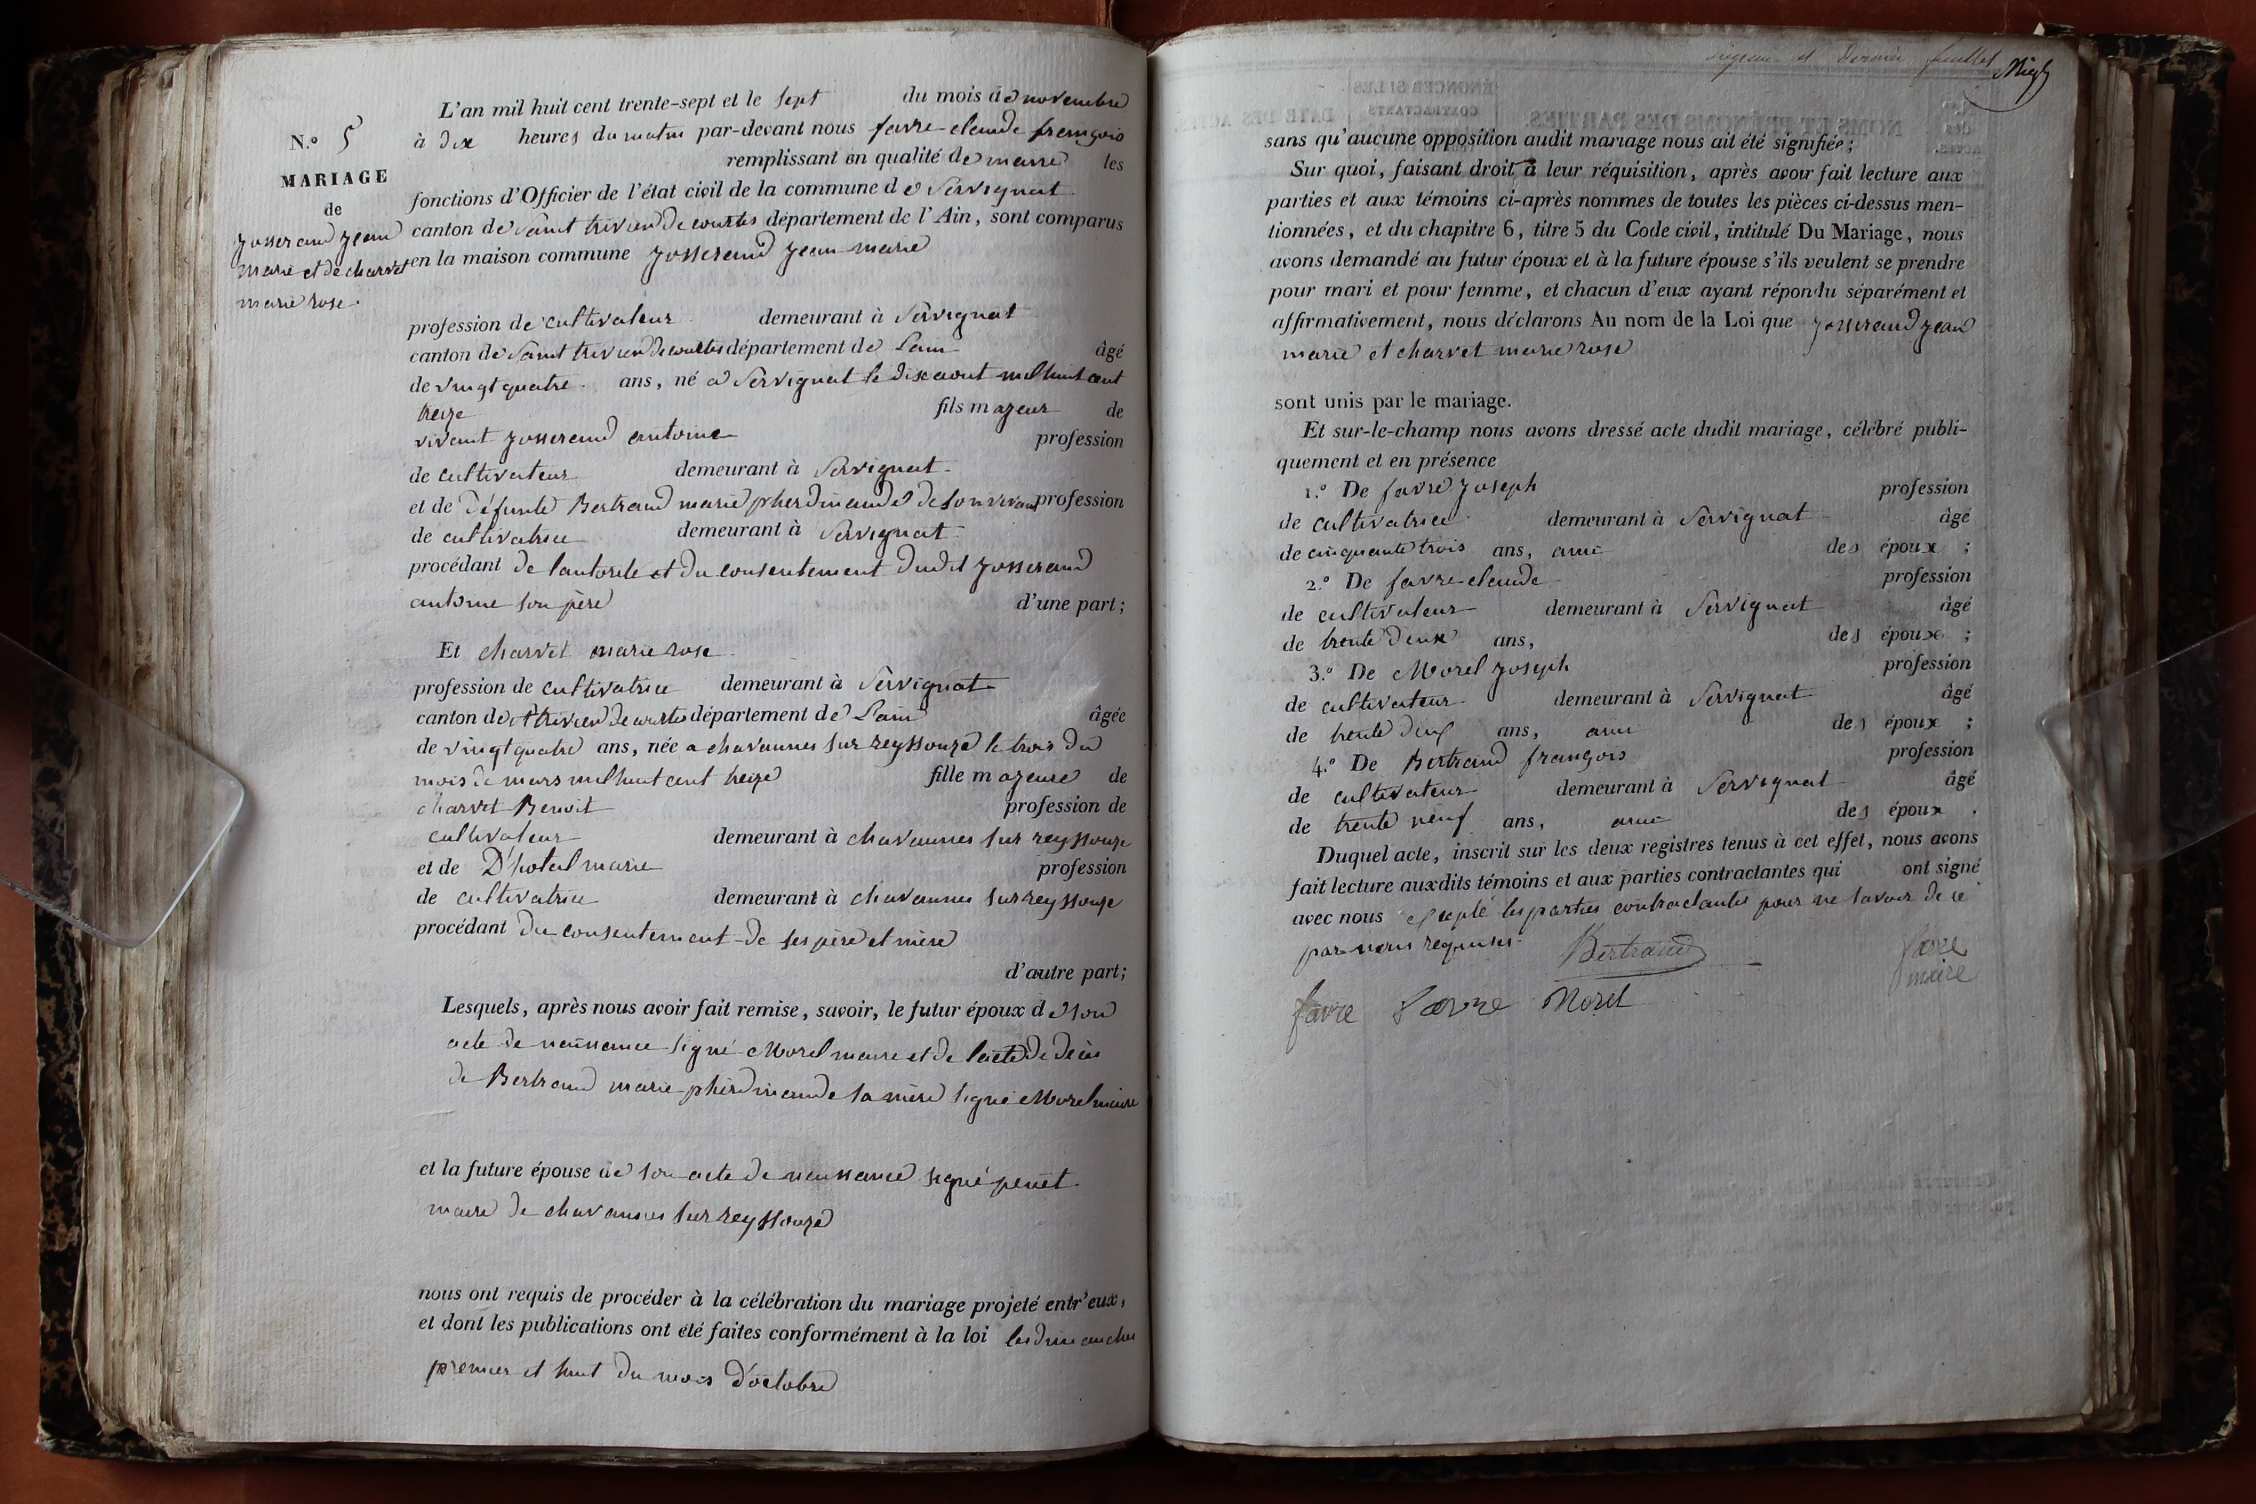 N.o 5
MARIAGE
de
Josserand Jean
marie et de charvet
marie rose.
L'an mil huit cent trente-sept et le sept du mois de novembre
à dix heures du matin par-devant nous favre claude françois
remplissant en qualité de maire les
fonctions d'Officier de l'état civil de la commune de Servignat
canton de Saint trivier de courtes département de l'Ain, sont comparus
en la maison commune Josserand Jean marie
profession de cultivateur demeurant à Servignat
canton de Saint trivier de courtes département de Lain âgé
de vingt quatre ans, né a Servignat le dix aout mil huit cent
treize fils majeur de
vivant Josserand antoine profession
de cultivateur demeurant à Servignat
et de défunte Bertrand marie pherdinande de son vivant profession
de cultivatrice demeurant à Servignat
procédant de lautorite et du consentement dudit Josserand
antoine son père d'une part;
Et charvet marie rose
profession de cultivatrice demeurant à Servignat
canton de St trivier de courtes département de Lain âgée
de vingt quatre ans, née a chavannes sur reyssouze le trois du
mois de mars mil huit cent treize fille majeure de
charvet Benoit profession de
cultivateur demeurant à chavannes sur reyssouze
et de D'hotal marie profession
de cultivatrice demeurant à chavannes sur reyssouze
procédant du consentement de ses père et mère
d'autre part;
Lesquels, après nous avoir fait remise, savoir, le futur époux de son
acte de naissance signé Morel maire et de lacte de décès
de Bertrand marie pherdinande sa mère signé Morel maire
et la future épouse de son acte de naissance signé penet
maire de chavannes sur reyssouze
nous ont requis de procéder à la célébration du mariage projeté entr'eux,
et dont les publications ont été faites conformément à la loi les dimanches
premier et huit du mois d'octobre
et dernier feuillet
sans qu'aucune opposition audit mariage nous ait été signifiée;
Sur quoi, faisant droit à leur réquisition, après avoir fait lecture aux
parties et aux témoins ci-après nommes de toutes les pièces ci-dessus men-
tionnées, et du chapitre 6, titre 5 du Code civil, intitulé Du Mariage, nous
avons demandé au futur époux et à la future épouse s'ils veulent se prendre
pour mari et pour femme, et chacun d'eux ayant répondu séparément et
affirmativement, nous déclarons Au nom de la Loi que Josserand Jean
marie et charvet marie rose
sont unis par le mariage.
Et sur-le-champ nous avons dressé acte dudit mariage, célébré publi-
quement et en présence
1.o De favre Joseph profession
de cultivatrice demeurant à Servignat âgé
de cinquante trois ans, ami des époux ;
2.o De favre claude profession
de cultivateur demeurant à Servignat âgé
de trente deux ans, des époux ;
3.o De Morel Joseph profession
de cultivateur demeurant à Servignat âgé
de trente deux ans, ami des époux ;
4.o De Bertrand françois profession
de cultivateur demeurant à Servignat âgé
de trente neuf ans, ami des époux .
Duquel acte, inscrit sur les deux registres tenus à cet effet, nous avons
fait lecture auxdits témoins et aux parties contractantes qui ont signé
avec nous excepté les parties contractantes pour ne savoir de ce
par nous requises.
Bertrand
favre
maire
favre favre Morel